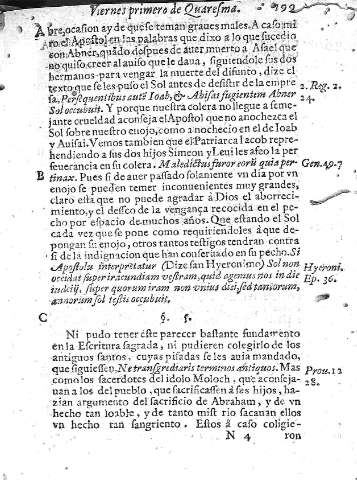 Viernes primero de Quaresma. 192
Abre, ocasion ay de que se teman graues males. A caso mi
ro el Apostol en las palabras que dizo a lo que sucedio
con Abner, quãdo despues de auer muerto a Asael que
no quiso creer al auiso que le daua, siguiendole sus dos
hermanos para vengar la muerte del difunto, dize el
texto que se les puso el Sol antes de desistir de la empre
sa. Persequentibus autẽ Ioab, & Abisai fugientem Abner 2. Reg. 2.
Sol occubuit. Y porque nuestra colera no llegue a seme- 24.
jante crueldad aconseja el Apostol que no anochezca el
Sol sobre nuestro enojo, como anochecio en el de Ioab
y Auisai. Vemos tambien que el Patriarca Iacob repre-
hendiendo a sus dos hijos Simeon y Leui les afeo la per
seuerancia en su colera. Maledictus furor eorũ quia per- Gen. 49. 7
B tinax. Pues si de auer passado solamente vn dia por vn
enojo se pueden temer inconuenientes muy grandes,
claro està que no puede agradar à Dios el aborreci-
miento, y el desseo de la vengança recocida en el pe-
cho por espacio de muchos años. Que estando el Sol
cada vez que se pone como requiriendoles à que de-
pongan su enojo, otros tantos testigos tendran contra
si de la indignacion que han conseruado en su pecho. Si
Apostolu interpretatur (Dize san Hyeronimo) Sol non Hyeroni.
occidat super iracundiam vestram, quid agemus nos in die Ep. 36.
iudicij, super quorum iram non vnius diei, sed tantorum,
annorum sol testis occubuit.
C §. 5.
Ni pudo tener éste parecer bastante fundamento
en la Escritura sagrada, ni pudieren colegirlo de los
antiguos santos, cuyas pisadas se les auia mandado,
que siguiessen. Ne transgrediaris terminos antiquos. Mas Prou. 12
como los sacerdotes del idolo Moloch, que aconseja- 28.
uan a los del pueblo, que sacrificassen á ses hijos, ha-
zian argumento del sacrificio de Abraham, y de vn
hecho tan loable, y de tanto mist rio sacauan ellos
vn hecho tan sangriento. Estos à caso coligie-
N 4 ron